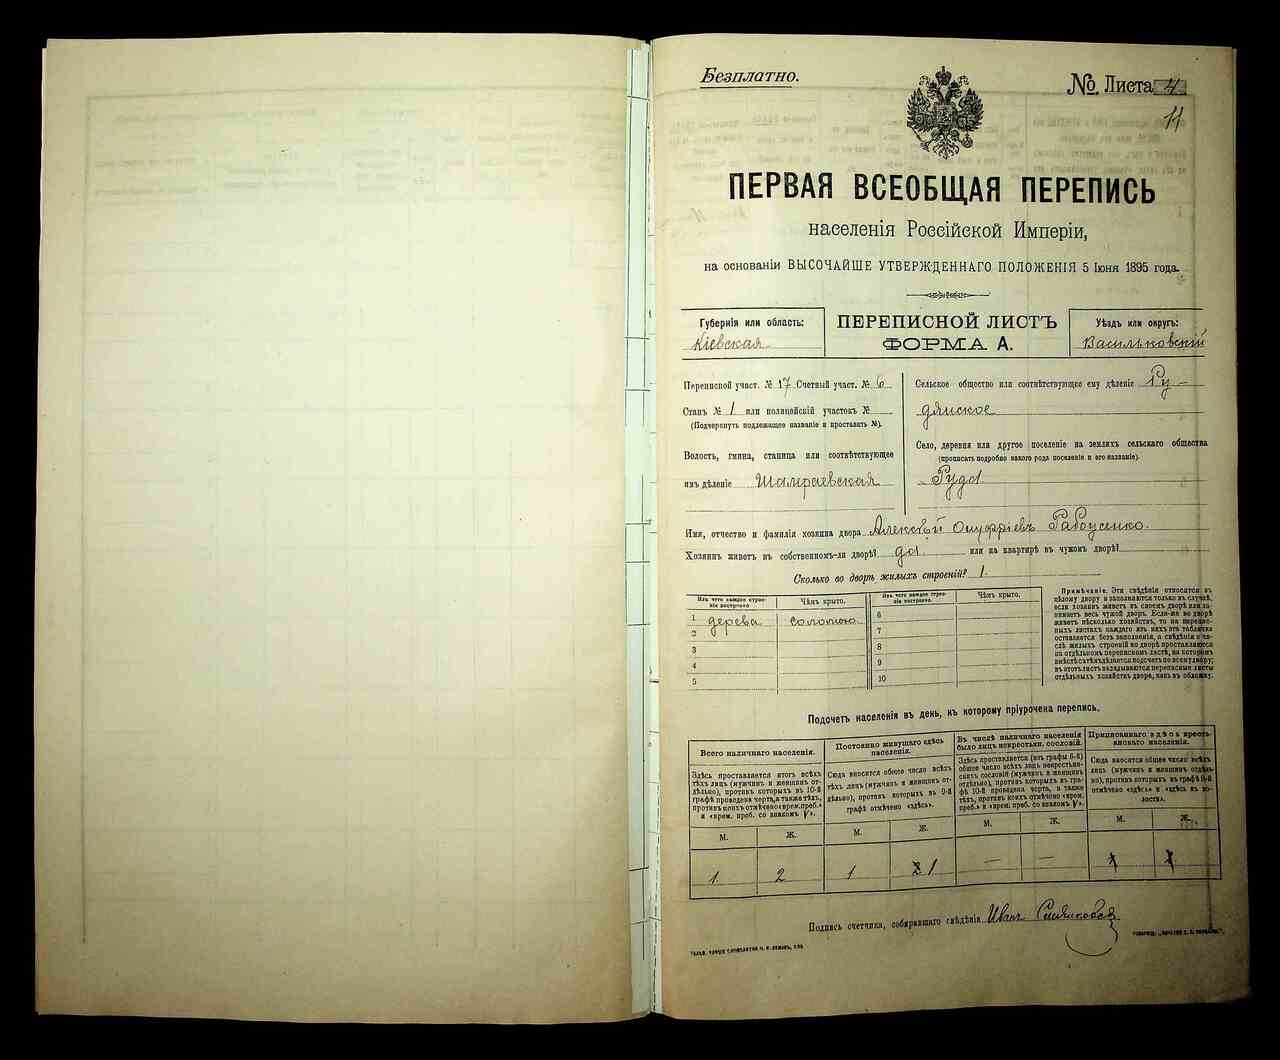 Безплатно.
№ Листа 4
11
ПЕРВАЯ ВСЕОБЩАЯ ПЕРЕПИСЬ
населенія Россійской Имперіи,
на основаніи ВЫСОЧАЙШЕ УТВЕРЖДЕННАГО ПОЛОЖЕНІЯ 5 Іюня 1895 года.
Губернія или область:
Кіевская
ПЕРЕПИСНОЙ ЛИСТЪ
ФОРМА А.
Уѣздъ или округъ:
Васильковскій
Переписной участ. № 17 Счетный участ. № 6
Станъ № 1 или полицейскій участокъ №
(Подчеркнуть подлежащее названіе и проставить №).
Волость, гмина, станица или соотвѣтствующее
имъ дѣленіе Шамраевская
Сельское общество или соотвѣтствующее ему дѣленіе Ру-
дянское
Село, деревня или другое поселеніе на земляхъ сельскаго общества
(прописать подробно какого рода поселеніе и его названіе).
Руда
Имя, отчество и фамилія хозяина двора Алексѣй Онуфріевъ
Хозяинъ живетъ въ собственномъ-ли дворѣ? да. или на квартирѣ въ чужомъ дворѣ?
Сколько во дворѣ жилыхъ строеній? 1.
Изъ чего каждое строе-
ніе построено
Чѣмъ крыто.
1 дерева соломою
2
3
4
5
Изъ чего каждое строе-
ніе построено.
Чѣмъ крыто.
6
7
8
9
10
Примѣчаніе. Эти свѣдѣнія относятся къ
цѣлому двору и заполняются только въ случаѣ,
если хозяинъ живетъ въ своемъ дворѣ или за-
нимаетъ весь чужой дворъ. Если-же во дворѣ
живетъ нѣсколько хозяйствъ, то на перепис-
ныхъ листахъ каждаго изъ нихъ эта табличка
оставляется безъ заполненія, а свѣдѣнія о чи-
слѣ жилыхъ строеній во дворѣ проставляются
на отдѣльномъ переписномъ листѣ, на которомъ
вмѣстѣ съ тѣмъ дѣлается подсчетъ по всему двору;
въ этотъ листъ вкладываются переписные листы
отдѣльныхъ хозяйствъ двора, какъ въ обложку.
Подсчетъ населенія въ день, къ которому пріурочена перепись.
Всего наличнаго населенія.
Здѣсь проставляется итогъ всѣхъ
тѣхъ лицъ (мужчинъ и женщинъ от-
дѣльно), противъ которыхъ въ 10-й
графѣ проведена черта, а также тѣхъ,
противъ коихъ отмѣчено «врем. преб.»
и «врем. преб. со знакомъ V».
Постоянно живущаго здѣсь
населенія.
Сюда вносится общее число всѣхъ
тѣхъ лицъ (мужчинъ и женщинъ от-
дѣльно), противъ которыхъ въ 9-й
графѣ отмѣчено «здѣсь».
Въ числѣ наличнаго населенія
было лицъ некрестьян. сословій.
Здѣсь проставляется (изъ графы 6-й)
общее число всѣхъ лицъ некрестьян-
скихъ сословій (мужчинъ и женщинъ
отдѣльно), противъ которыхъ въ гра-
фѣ 10-й проведена черта, а также
тѣхъ, противъ коихъ отмѣчено «врем.
преб.» и «врем. преб. со знакомъ V».
Приписаннаго здѣсь кресть-
янскаго населенія.
Сюда вносится общее число всѣхъ
лицъ (мужчинъ и женщинъ отдѣль-
но), противъ которыхъ въ графѣ 8-й
отмѣчено «здѣсь» и «здѣсь въ во-
лости».
М. Ж. М. Ж. М. Ж. М. Ж.
1. 2 1 1 — —
Подпись счетчика, собиравшаго свѣдѣнія Иванъ